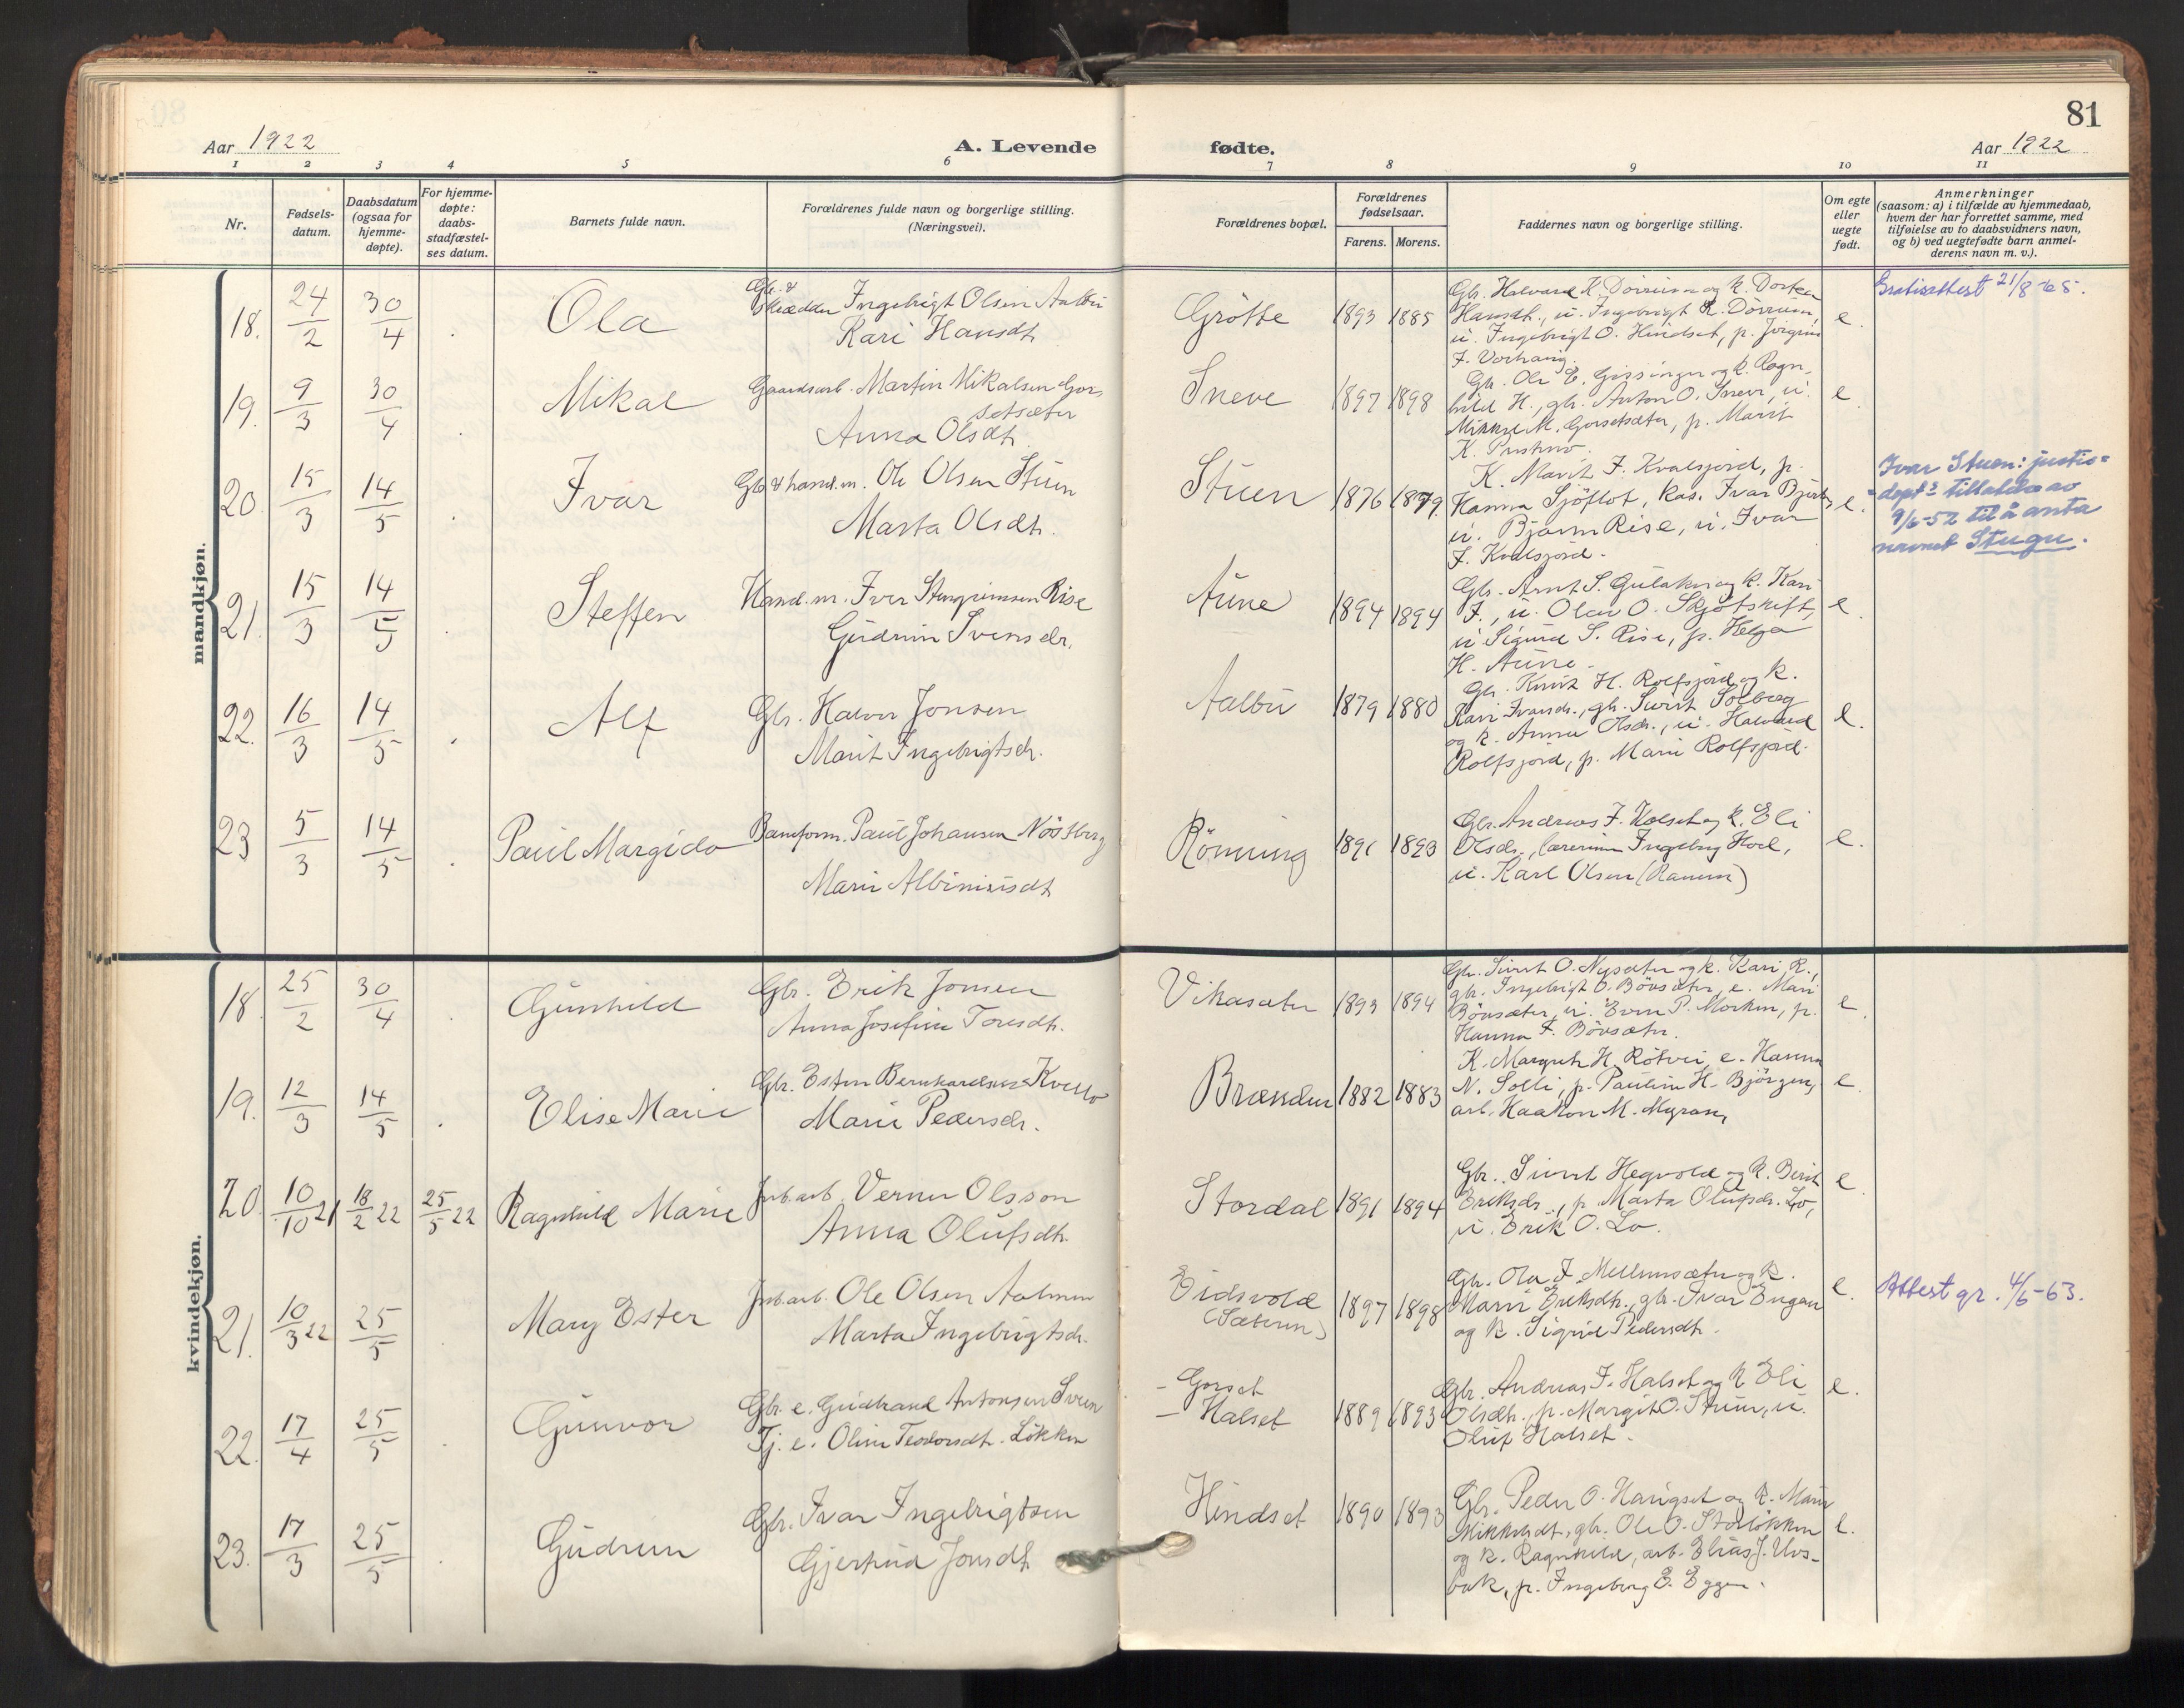 81
Aar 1922
A. Levende
fødte.
Aar 1922
1 2 3 4 5 6 7 8 9 10 11
Nr.
Fødsels-
datum.
Daabsdatum
(ogsaa for
hjemme-
døpte).
For hjemme-
døpte:
daabs-
stadfæstel-
ses datum.
Barnets fulde navn.
Forældrenes fulde navn og borgerlige stilling.
(Næringsvei).
Forældrenes bopæl.
Forældrenes
fødselsaar.
Farens. Morens.
Faddernes navn og borgerlige stilling.
Om egte
eller
uegte
født.
Anmerkninger
(saasom: a) i tilfælde av hjemmedaab,
hvem der har forrettet samme, med
tilføielse av to daabsvidners navn,
og b) ved uegtefødte barn anmel-
derens navn m. v.).
mandkjøn.
18. 24/2 30/4 Ola
Gbr. &
Skrædder Ingebrigt Olsen Aalbu
Kari Hansdt.
Grötte 1893 1885
Gbr. Halvard K. Dörrum og k. Dorthea
Hansdt., u. Ingebrigt K. Dörrum,
u. Ingebrigt O. Hindset, p. Jörgine
F. Vorhaug.
e.
Gratisattest 21/8-65.
19. 9/3 30/4 Mikal
Gaardsarb. Martin Mikalsen Gor-
setsæter
Anna Olsdt.
Sneve 1897 1898
Gbr. Ole E. Gissinger og k. Ragn-
hild H., gbr. Anton O. Sneve, u.
Mikkel M. Gorsetsæter, p. Marit
K.
e
20. 15/3 14/5 Ivar
Gb & hand.m. Ole Olsen Stuen
Marta Olsdt.
Stuen 1876 1879.
K. Marit F. Kvalsjord, p.
Hanna Sjöflot, kas. Ivar
u. Bjarne Rise, u. Ivar
F. Kvalsjord.
e.
Ivar Stuen: justis=
=dept's tillatelse av
9/6-52 til å anta
navnet Stugu.
21. 15/3 14/5 Steffen
Hand.m. Iver Steingrimsen Rise
Gudrun Svensdr.
Aune 1894 1894
Gbr. Arnt S. Gulaker og k. Kari
F., u. Olav O. Skjötskift,
u. Sigurd S. Rise, p. Helga
H. Aune.
e
22. 16/3 14/5 Alf
Gbr. Halvor Jonsen
Marit Ingebrigtsdr.
Aalbu 1879 1880
Gbr. Knut H. Rolfsjord og k.
Kari Ivarsdr., gbr. Sivert Solberg
og k. Anne Olsdr., u. Halvard
Rolfsjord, p. Marie Rolfsjord.
e.
23 5/3 14/5 Paul Margido
Baneform. Paul Johansen Nöstberg
Marie Albinusdt.
Rönning 1891 1893
Gbr. Andreas F. Halset og k. Eli
Olsdr., lærerinne Ingeborg Hoel,
u. Karl Olsen (Ranum)
e.
kvindekjøn.
18. 25/2 30/4 Gunhild
Gbr. Erik Jonsen
Anna Josefine Toresdt.
Vikasæter 1893 1894
Gbr. Sivert O. Nysæter og k. Kari R.,
gbr. Ingebrigt O. Bövsæter, e. Mari
Bövsæter, u. Even P. Morken, p.
Hanna F. Bövsæter.
e.
19. 12/3 14/5 Elise Marie
Gbr. Esten Bernhardsen Kvello
Marie Pedersdr.
Brænden 1882 1883
K. Margrete H. Rötvei, e. Hanna
N. Solli, p. Pauline H. Björgen,
arb. Haakon M. Myran,
e.
20. 10/10 21 18/2 22 25/5 22 Ragnhild Marie
Jnb.arb. Verner Olsson
Anna Olufsdt.
Stordal 1891 1894
Gbr. Sivert Hegvold og k. Berit
Eriksdr., p. Marta Olufsdr. Lo,
u. Erik O. Lo.
e.
21. 10/3 22 25/5 Mary Ester
Jnb.arb. Ole Olsen Aalmen
Marta Ingebrigtsdr.
Eidsvold
(Sæteren) 1897 1898
Gbr. Ola F. Mellemsæter og k.
Marie Eriksdt., gbr. Ivar Engan
og k. Sigrid Pedersdt.
e.
Attest gr. 4/6-63.
22. 17/4 25/5 Gunvor
Gbr. e. Gudbrand Antonsen Sveen
Tj. e. Oline Teodorsdt. Lökken
- Gorset
- Halset 1889 1893
Gbr. Andreas F. Halset og k Eli
Olsdt., p. Margit O. Stuen, u.
Oluf Halset.
e.
23. 17/3 25/5 Gudrun
Gbr. Ivar Ingebrigtsen
Gjertrud Jonsdt.
Hindset 1890 1893
Gbr. Peder O. Haugset og k. Marie
Mikkelsdt., gbr. Ole O. Storlökken
og k. Ragnhild, arb. Elias J. Uvs-
bak, p. Ingeborg E. Eggen.
e.